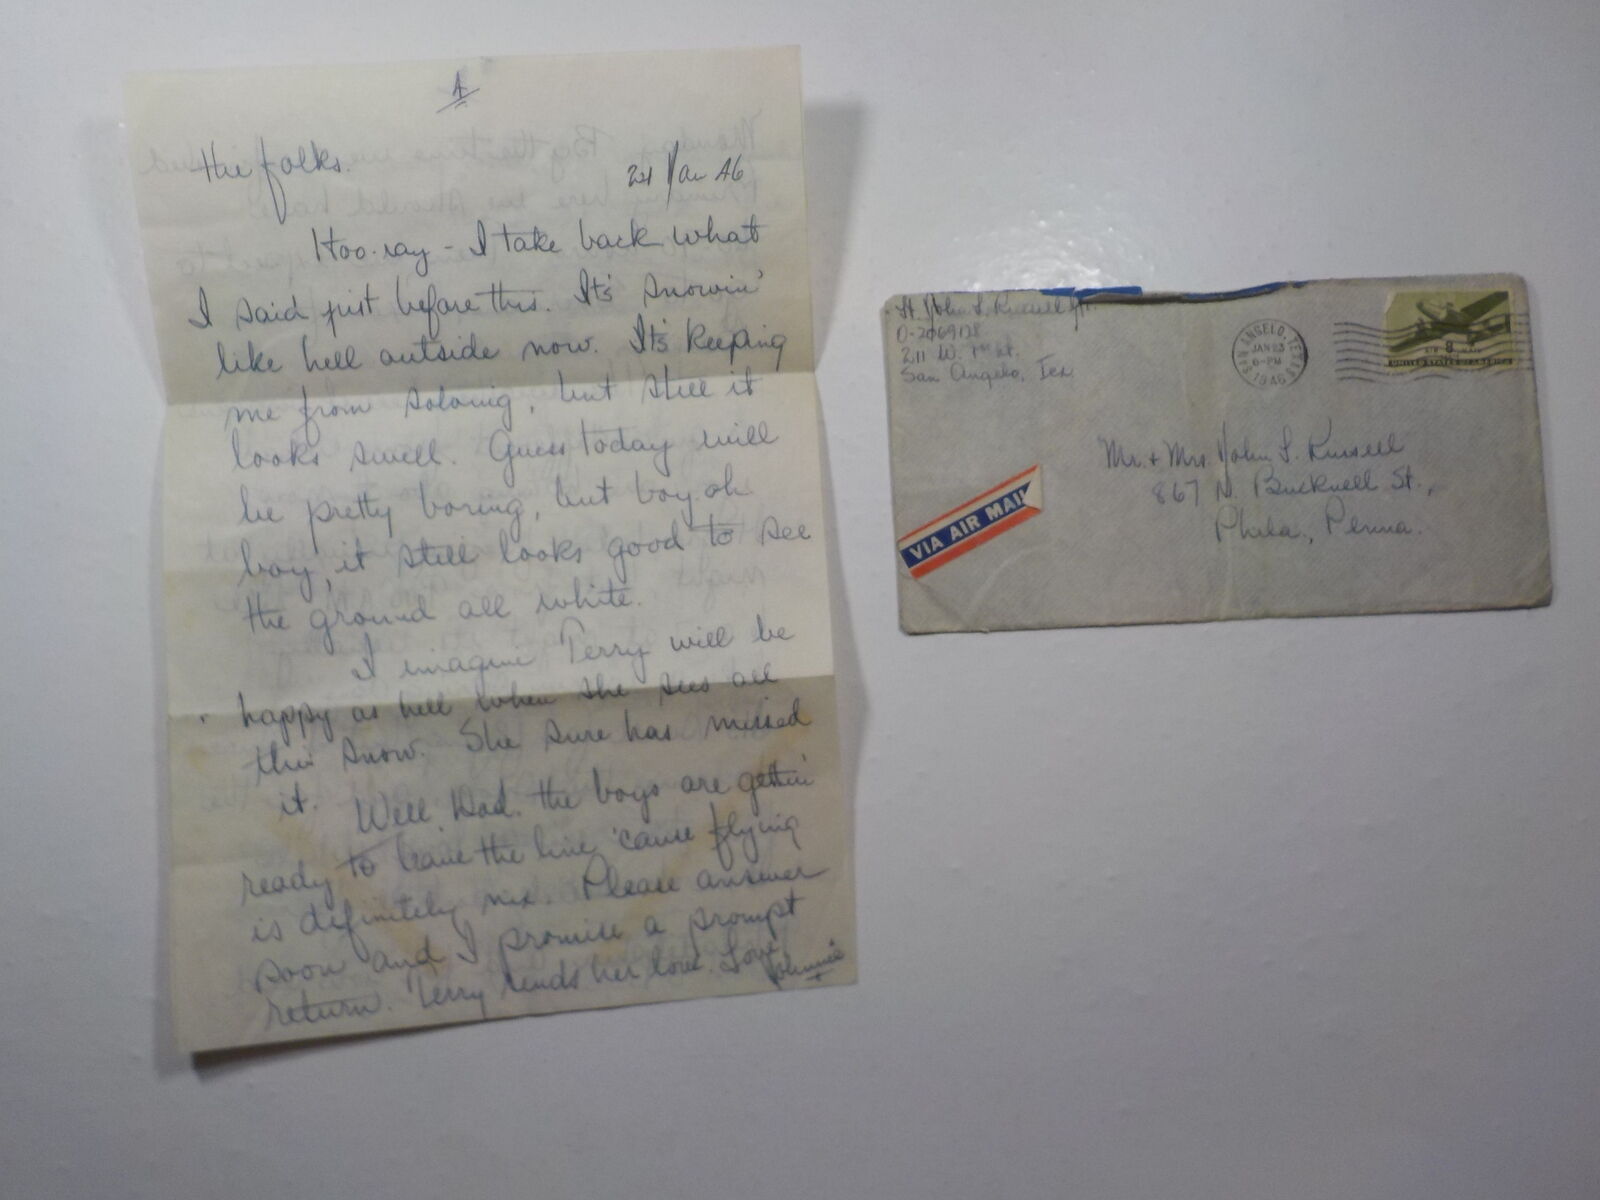 4
the folks.
21 Jan 46
Hoo-ray - I take back what
I said just before this. It's snowin'
like hell outside now. It's keeping
me from soloing, but still it
looks swell. Guess today will
be pretty boring, but boy oh
boy, it still looks good to see
the ground all white.
I imagine Terry will be
happy as hell when she sees all
this snow. She sure has missed
it.
Well Dad, the boys are gettin'
ready to leave the line 'cause flying
is definitely nix. Please answer
soon and I promise a prompt
return. Terry sends her love. Love,
Johnnie
Lt. John S. Russell Jr.
O-2069128
211 W. 1st St.
San Angelo, Tex
SAN ANGELO, TEXAS
JAN 23
6-PM
1946
AIR MAIL
8¢
UNITED STATES OF AMERICA
Mr. + Mrs. John S. Russell
867 N. Bucknell St.,
Phila., Penna.
VIA AIR MAIL